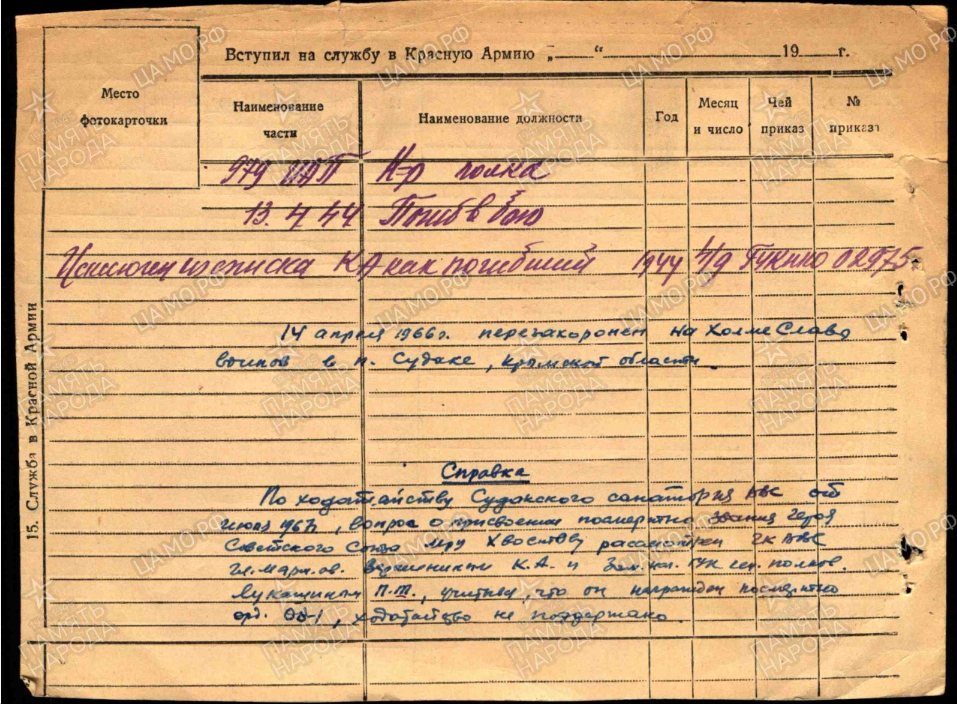 Вступил на службу в Красную Армию „ “ 19 г.
Место
фотокарточки
Наименование
части
Наименование должности
Год
Месяц
и число
Чей
приказ
№
приказа
979 ИАП К-р полка
13.4.44 Погиб в бою
Исключен из списка КА как погибший 1944 4/9 ГУК НКО 02975
14 апреля 1966г. перезахоронен на Холме Славы
воинов в п. Судаке, Крымской области.
15. Служба в Красной Армии
Справка
По ходатайству Судакского санатория ВВС от
июля 1967, вопрос о присвоении посмертно звания Героя
Советского Союза м-ру Хвостову рассмотрен ГК ВВС
гл. марш. ав. Вершининым К.А. и зам. нач. ГУК ген. полков.
Лукашиным П.Т., учитывая, что он награжден посмертно
орд. ОВ-I, ходатайство не поддержано.
ЦАМО.РФ
ПАМЯТЬ
НАРОДА